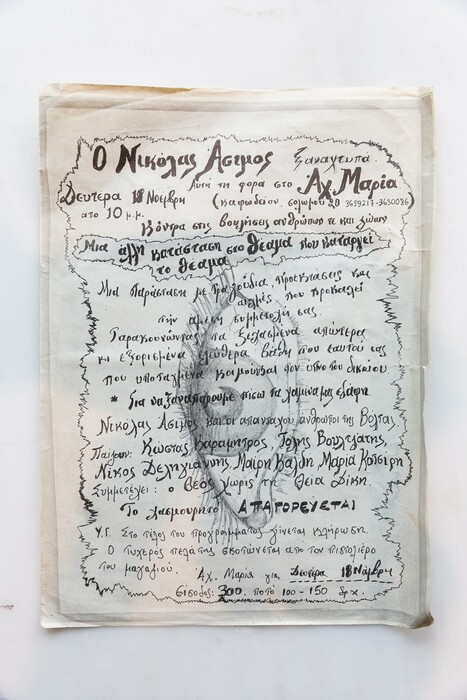 Ο Νικόλας Άσιμος Ξαναχτυπά.
Δευτέρα 18 Νοέμβρη Αυτή τη φορά στο Αχ, Μαρία
από 10 μ.μ. (καιρώδειον, σολωμού 20 3639217-3630086
Κόντρα στις βουλήσεις ανθρώπων τε και ζώων
Μια άλλη κατάσταση στο θέαμα που καταργεί
το θέαμα
Μια παράσταση με τραγούδια, προεκτάσεις και
αιχμές που προκαλεί
την άμεση συμμετοχή σας.
Ταρακουνώντας τα ξεχασμένα απώτερα
κι εξορισμένα ελεύθερα βάθη του εαυτού σας
που υποταγμένα κοιμούνται τον ύπνο του δικαίου
* Για να ξαναπάρουμε πίσω τα χαμένα μας εδάφη
Νικόλας Άσιμος και οι απανταχού άνθρωποι της Βόλτας
Παίζουν: Κώστας Καραμήτρος, Τόλης Βουλτζάτης,
Νίκος Δεληγιάννης, Μαίρη Καλδή, Μαρία Κοτσίρη
Συμμετέχει: ο Θεός χωρίς τη Θεία Δίκη.
Το χασμουρητό ΑΠΑΓΟΡΕΥΕΤΑΙ
Υ.Γ. Στο τέλος του προγράμματος γίνεται κλήρωση.
Ο τυχερός πελάτης σκοτώνεται από τον πιστολέρο
του μαγαζιού. Αχ. Μαρία για, Δευτέρα 18 Νοέμβρη
είσοδος: 300. ποτό 100-150 δρχ.